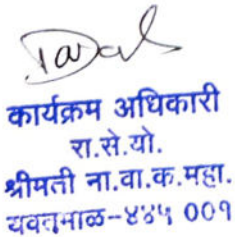 कार्यक्रम अधिकारी
रा.से.यो.
श्रीमती ना.वा.क.महा.
यवतमाळ-४४५ 001